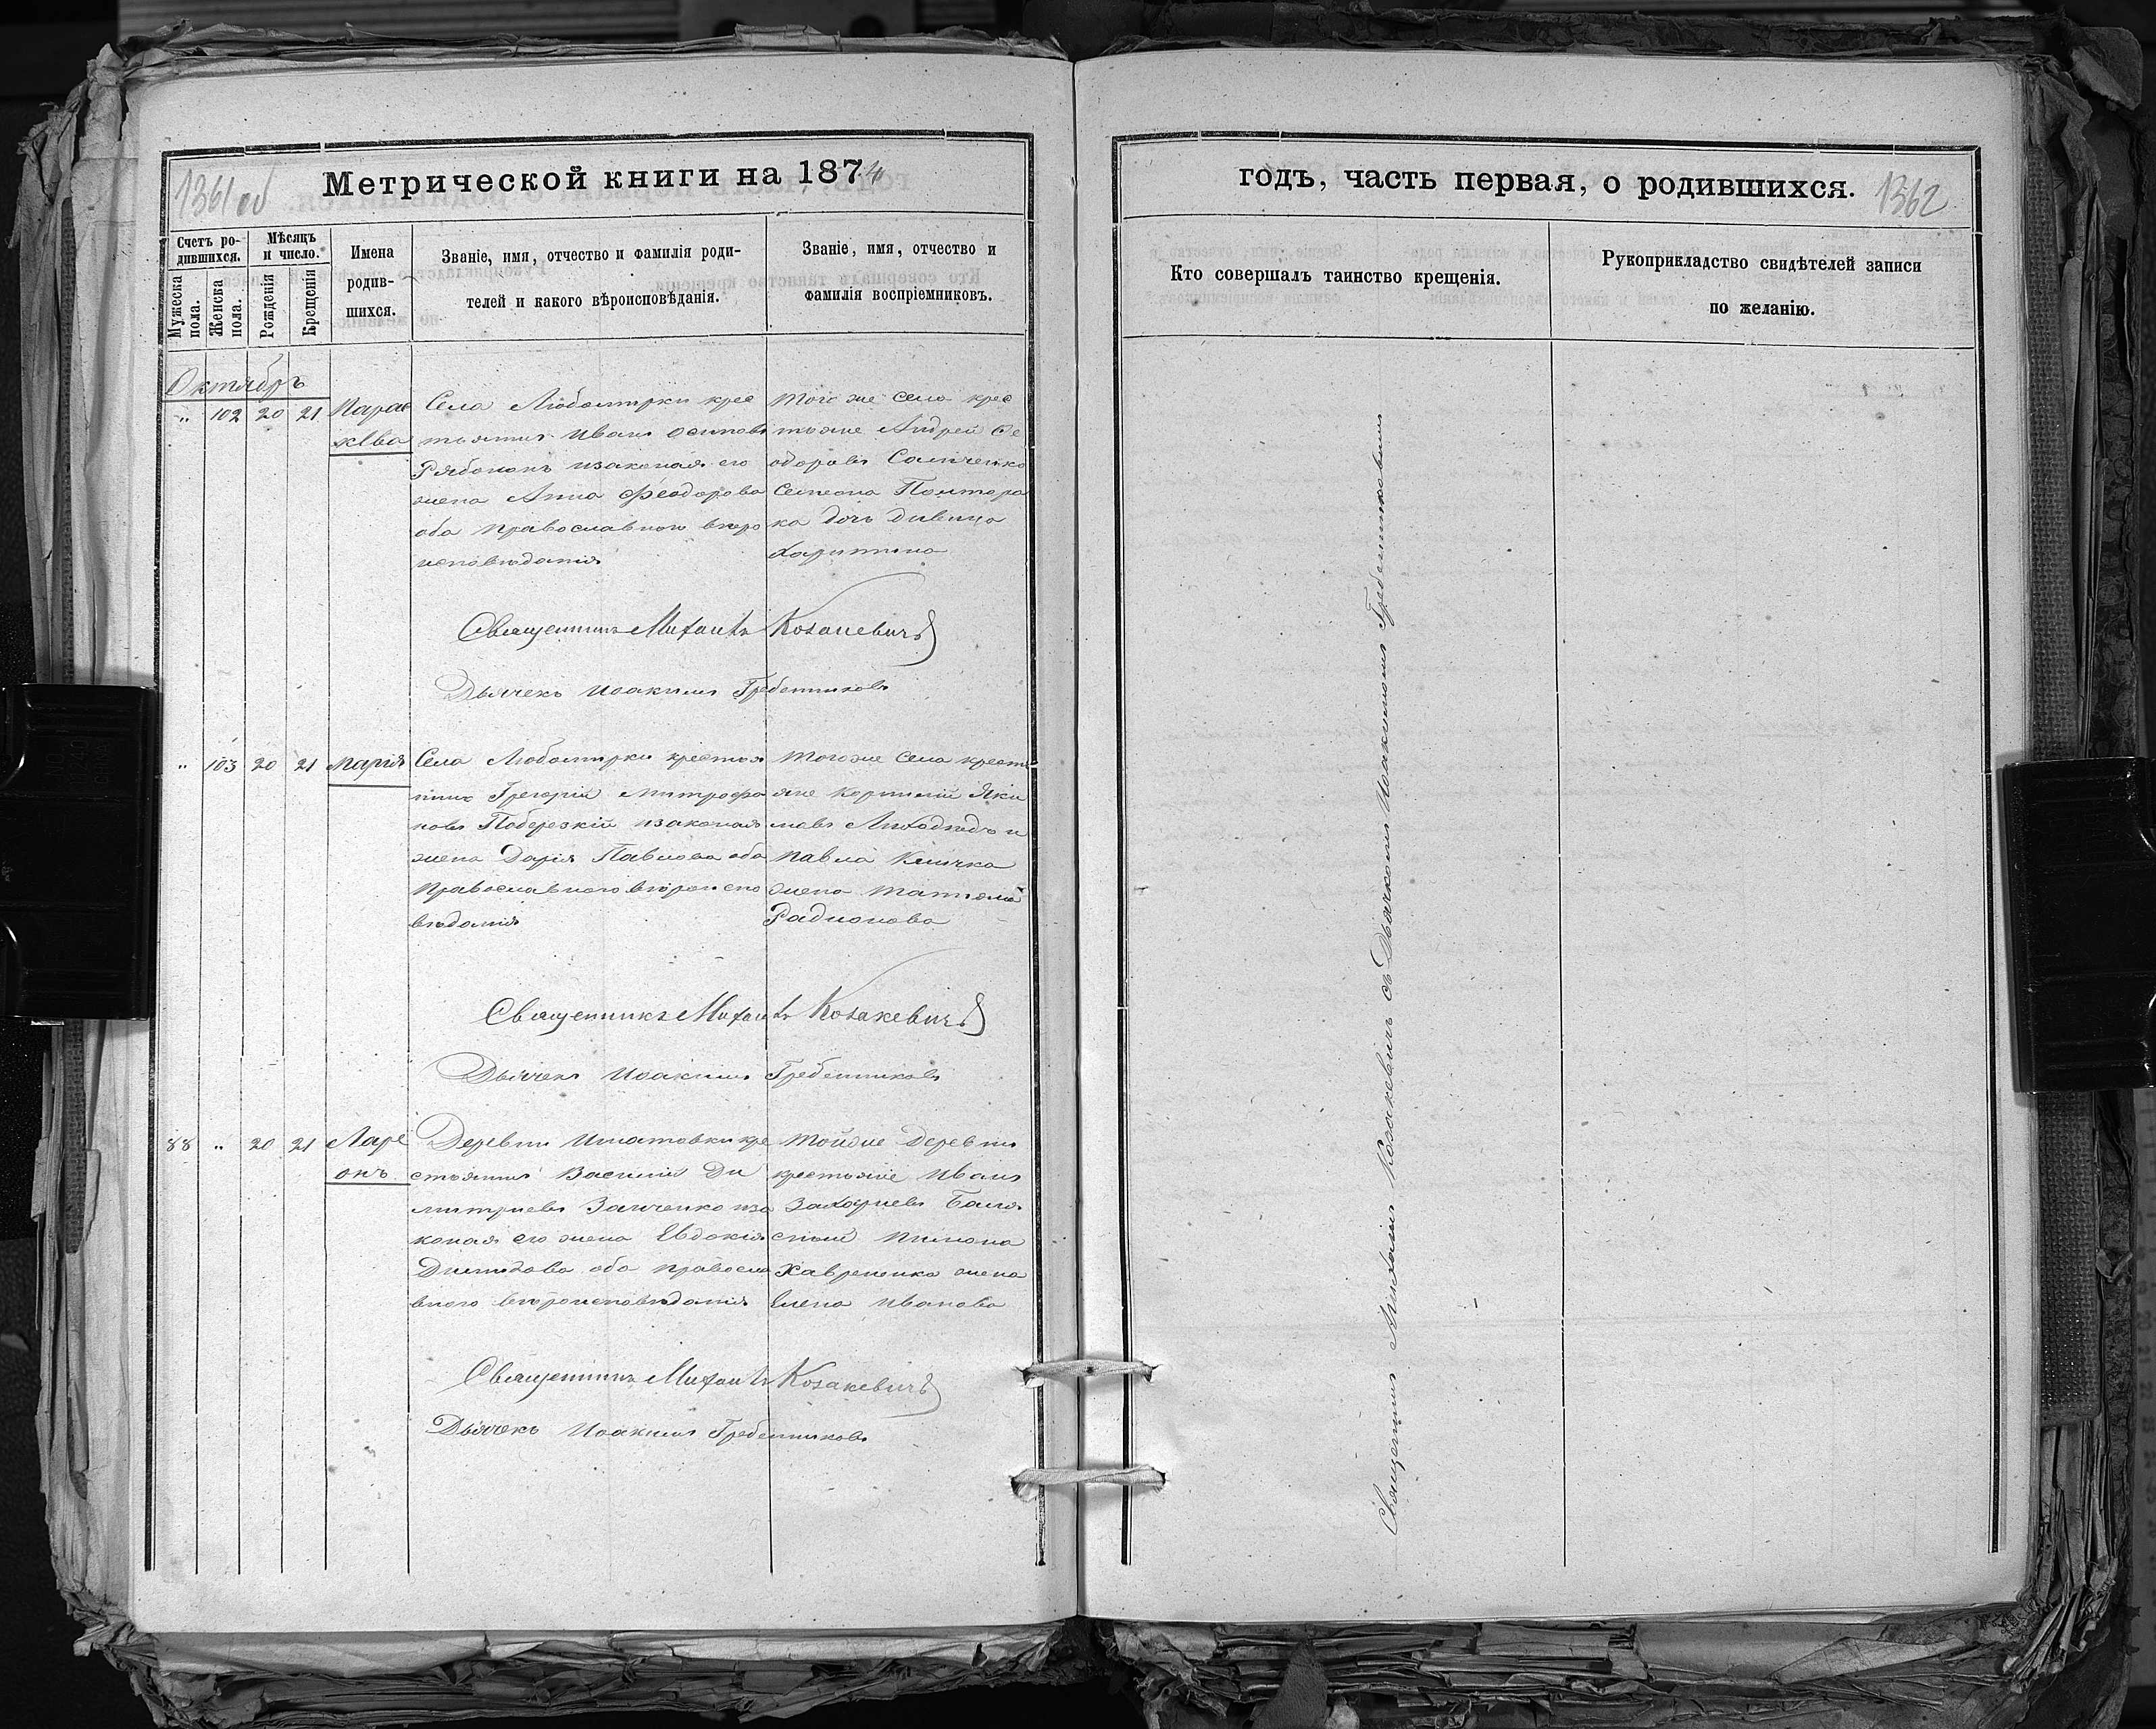 1361 об
Метрической книги на 1874
Счетъ ро-
дившихся.
Мѣсяцъ
и число.
Мужеска
пола.
Женска
пола.
Рожденія
Крещенія
Имена
родив-
шихся.
Званіе, имя, отчество и фамилія роди-
телей и какого вѣроисповѣданія.
Званіе, имя, отчество и
фамилія воспріемниковъ.
Октябрь
„ 102 20 21
Парас
кева
Села Любомирки крес
тьянинъ Иванъ Осиповъ
Рябоконь изаконая его
жена Анна Феодорова
оба православного вѣро
исповѣданія
Того же села крес
тьяне Андрей Фе
одоровъ
ка дочь дивица
Харитина
Священникъ Михаилъ Козакевичъ
Дьячекъ Иоакимъ Гребенниковъ
„ 103 20 21
Марія
Села Любомирки крестья
нинъ Грегорій Митрофа
новъ Поберезкій изаконая
жена Дарія Павлова оба
Православного вѣроиспо
вѣданія
Того же села кресть
яне Корнилій Яки
мовъ Лиходѣдъ и
Павла Кличка
жена Татіана
Радионова
Священникъ Михаилъ Козакевичъ
Дьячекъ Иоакимъ Гребенниковъ
88 „ 20 21
Ларе
онъ
Деревни Игнатовки кре
стьянинъ Василій Ди
митриевъ Заиченко иза
коная его жена Евдокія
Демидова оба правосла
вного вѣроисповѣданія
Тойже Деревни
крестьяне Иванъ
Захариевъ
Хавренка жена
Елена Иванова
Священникъ Михаилъ Козакевичъ
Дьячекъ Иоакимъ Гребенниковъ
годъ, часть первая, о родившихся.
1362
Кто совершалъ таинство крещенія.
Рукоприкладство свидѣтелей записи
по желанію.
Священникъ Михаилъ Козакевичъ съ Дьячкомъ Иоакимомъ Гребенниковымъ